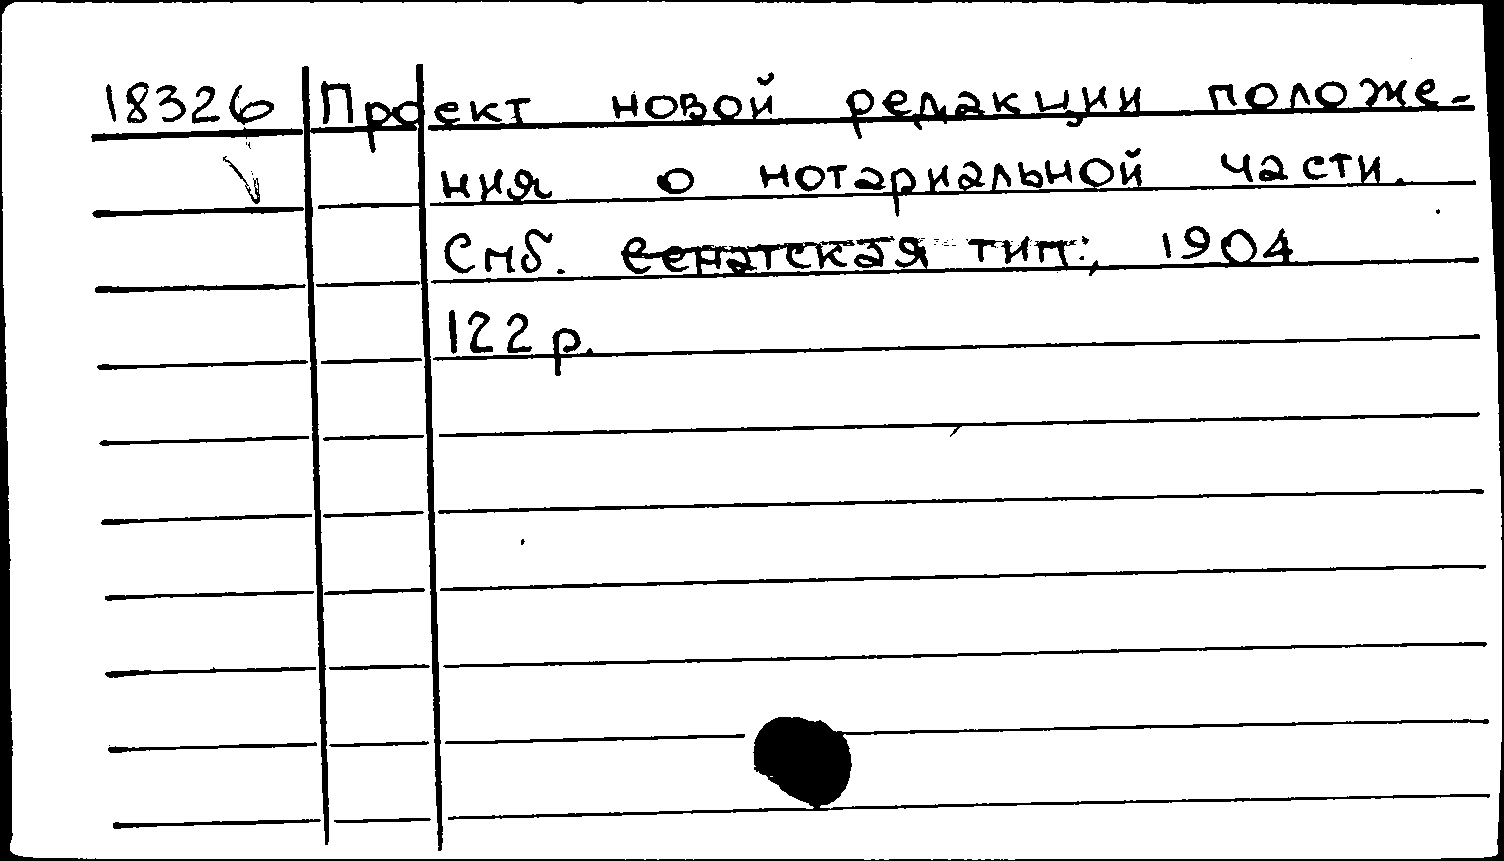 18326 Проект новой редакции положе-
ния о нотариальной части.
Спб. Сенатская тип., 1904
122 p.